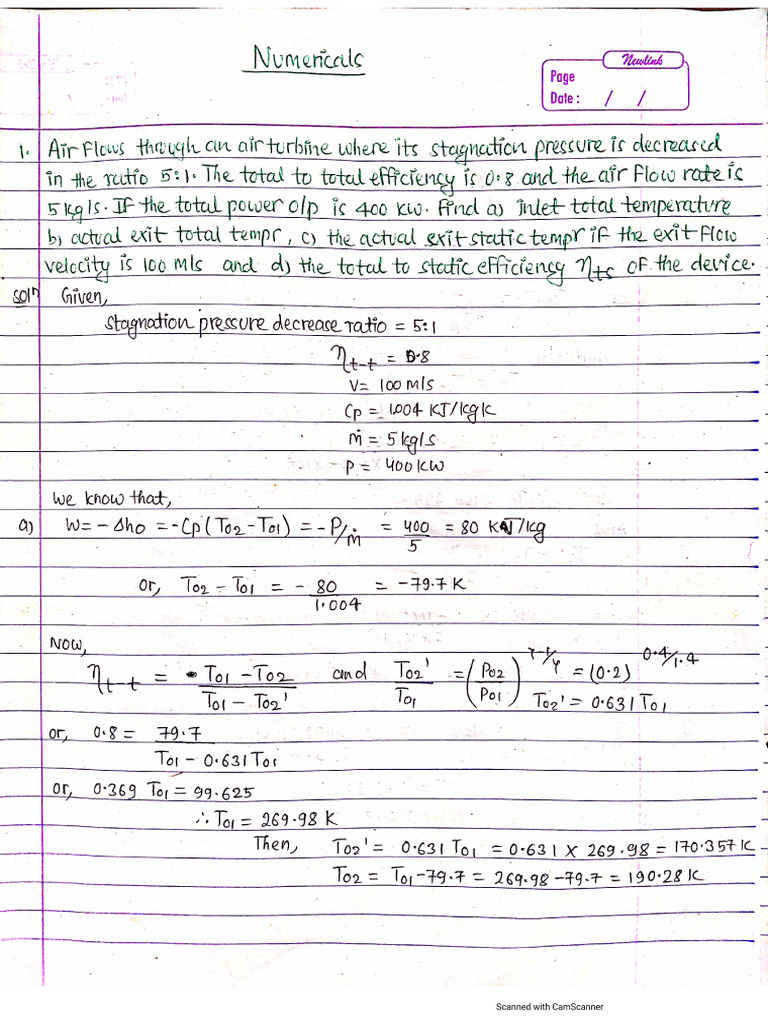 Numericals
Newlink
Page
Date : / /
1. Air flows through an air turbine where its stagnation pressure is decreased
in the ratio 5:1. The total to total efficiency is 0.8 and the air flow rate is
5 kg/s. If the total power o/p is 400 kw. Find a) inlet total temperature
b) actual exit total tempr, c) the actual exit static tempr if the exit flow
velocity is 100 m/s and d) the total to static efficiency ηts of the device.
solⁿ Given,
stagnation pressure decrease ratio = 5:1
ηt-t = 0.8
V = 100 m/s
Cp = 1.004 KJ/kgK
ṁ = 5 kg/s
P = 400 kw
we know that,
a) W = -Δho = -Cp (To2 - To1) = -P/ṁ = 400/5 = 80 KJ/kg
or, To2 - To1 = - 80/1.004 = -79.7 K
Now,
ηt-t = To1 - To2 / To1 - To2' and To2'/To1 = (Po2/Po1)^γ-1/γ = (0.2)^0.4/1.4
To2' = 0.631 To1
or, 0.8 = 79.7 / To1 - 0.631 To1
or, 0.369 To1 = 99.625
∴ To1 = 269.98 K
Then, To2' = 0.631 To1 = 0.631 × 269.98 = 170.357 K
To2 = To1 - 79.7 = 269.98 - 79.7 = 190.28 K
Scanned with CamScanner